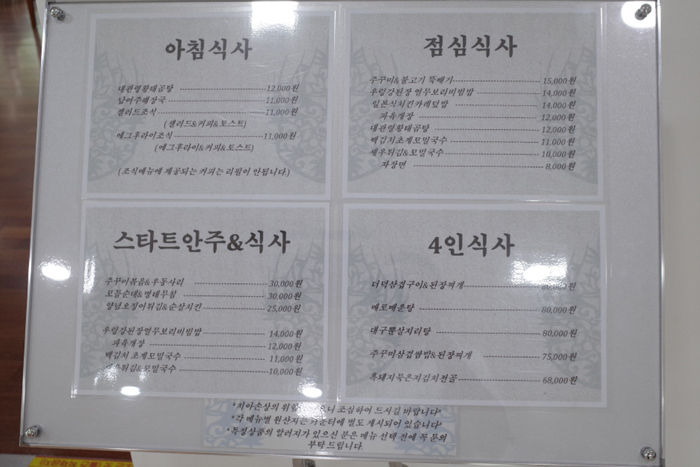 아침식사
대관령황태곰탕 12,000원
남여주해장국 11,000원
샐러드조식 11,000원
(샐러드&커피&토스트)
에그후라이조식 11,000원
(에그후라이&커피&토스트)
(조식메뉴에 제공되는 커피는 리필이 안됩니다.)
점심식사
주꾸미&불고기 뚝빼기 15,000원
우렁강된장 열무보리비빔밥 14,000원
일본식치킨카레덮밥 14,000원
파육개장 12,000원
대관령황태곰탕 12,000원
백김치초계모밀국수 11,000원
새우튀김&모밀국수 10,000원
짜장면 8,000원
스타트안주&식사
주꾸미볶음&우동사리 30,000원
모듬순대&명태무침 30,000원
양념오징어튀김&순살치킨 25,000원
우렁강된장열무보리비빔밥 14,000원
파육개장 12,000원
백김치 초계모밀국수 11,000원
새우튀김&모밀국수 10,000원
4인식사
더덕삼겹구이&된장찌개
메로매운탕 80,000원
대구뽈살지리탕 80,000원
주꾸미삼겹쌈밥&된장찌개 75,000원
흑돼지묵은지김치전골 68,000원
"치아손상의 위험 으니 조심하여 드시길 바랍니다"
"각 메뉴별 원산지는 카운터에 별도 게시되어 있습니다"
"특정상품의 알러지가 있으신 분은 메뉴 선택 전에 꼭 문의
부탁드립니다.